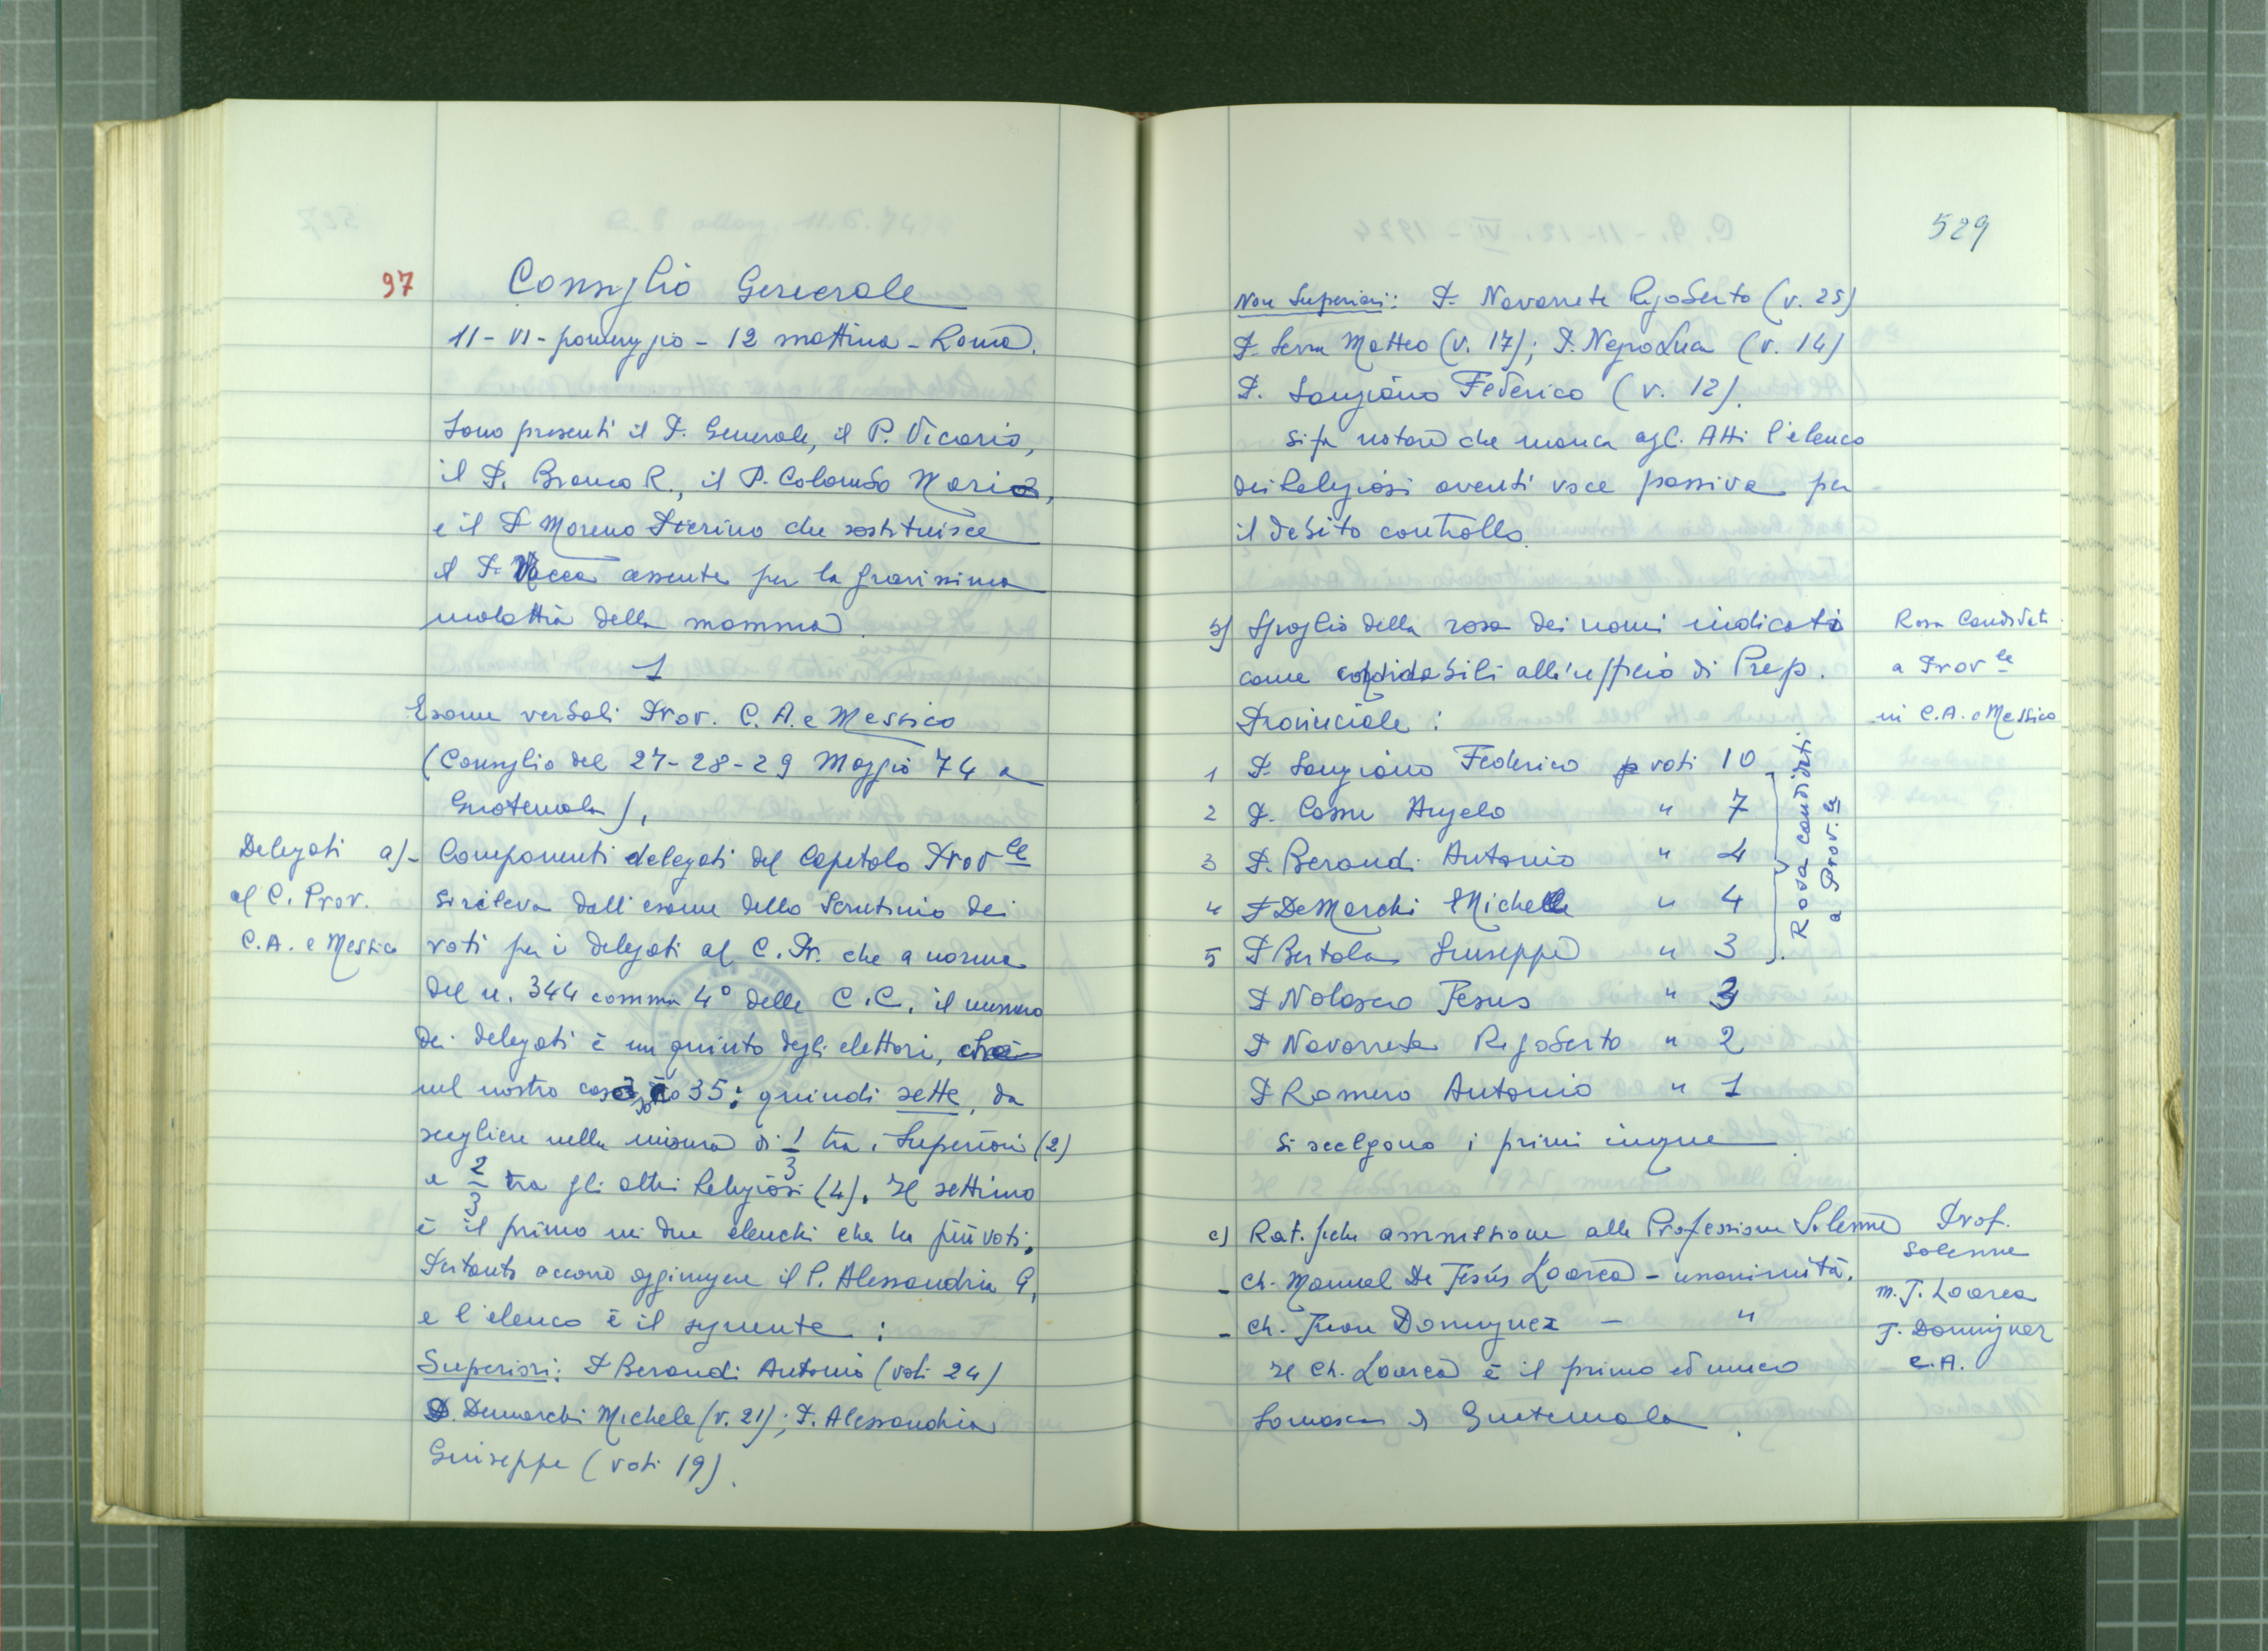 97
Consiglio Generale
11 - VI - pomeriggio - 12 mattina - Roma.
Sono presenti il P. Generale, il P. Vicario,
il P. Bianco R., il P. Colombo Mario,
e il P. Moreno Pierino che sostituisce
il P. Vacca assente per la gravissima
malattia della mamma.
1
Esame verbali Prov. C. A. e Messico
(Consiglio del 27-28-29 Maggio 74 a
Guatemala),
Delegati
al C. Prov.
C.A. e Messico
a)- Componenti delegati del Capitolo Prov.le
Si rileva dall'esame dello Scrutinio dei
voti per i delegati al C. Pr. che a norma
del n. 344 comma 4° delle C.C. il numero
dei delegati è un quinto degli elettori,
nel nostro caso sono 35: quindi sette, da
scegliere nella misura di 1/3 tra i Superiori (2)
e 2/3 tra gli altri Religiosi (4). Il settimo
è il primo nei due elenchi che ha più voti.
Pertanto occorre aggiungere il P. Alessandria G,
e l'elenco è il seguente :
Superiori: P Beraudi Antonio (voti 24)
P. Demarchi Michele (v. 21); P. Alessandria
Giuseppe (voti 19).
529
Non Superiori: P. Navarrete Rigoberto (v. 25)
P. Serra Matteo (v. 17); P. Negro Luca (v. 14)
P. Sangiano Federico (v. 12).
Si fa notare che manca agli Atti l'elenco
dei Religiosi aventi voce passiva per
il debito controllo.
b) Spoglio della rosa dei nomi indicati
come candidabili all'ufficio di Prep.
Provinciale :
Rosa Candidati
a Prov le
in C.A. e Messico
1 P. Sangiano Federico voti 10
2 P. Cossu Angelo " 7
3 P. Beraudi Antonio " 4
4 P DeMarchi Michele " 4
5 P Bertola Giuseppe " 3
P Nolasco Jesus " 3
P Navarrete Rigoberto " 2
P Romero Antonio " 1
Rosa candidati
a Prov. le
Si scelgono i primi cinque.
c) Ratifiche ammissione alla Professione Solenne
- Ch. Manuel De Jesús Loarca - unanimità.
- Ch. Juan Dominguez - "
Il Ch. Loarca è il primo ed unico
Somasco di Guatemala.
Prof.
Solenne
M. J. Loarca
J. Dominguez
C.A.